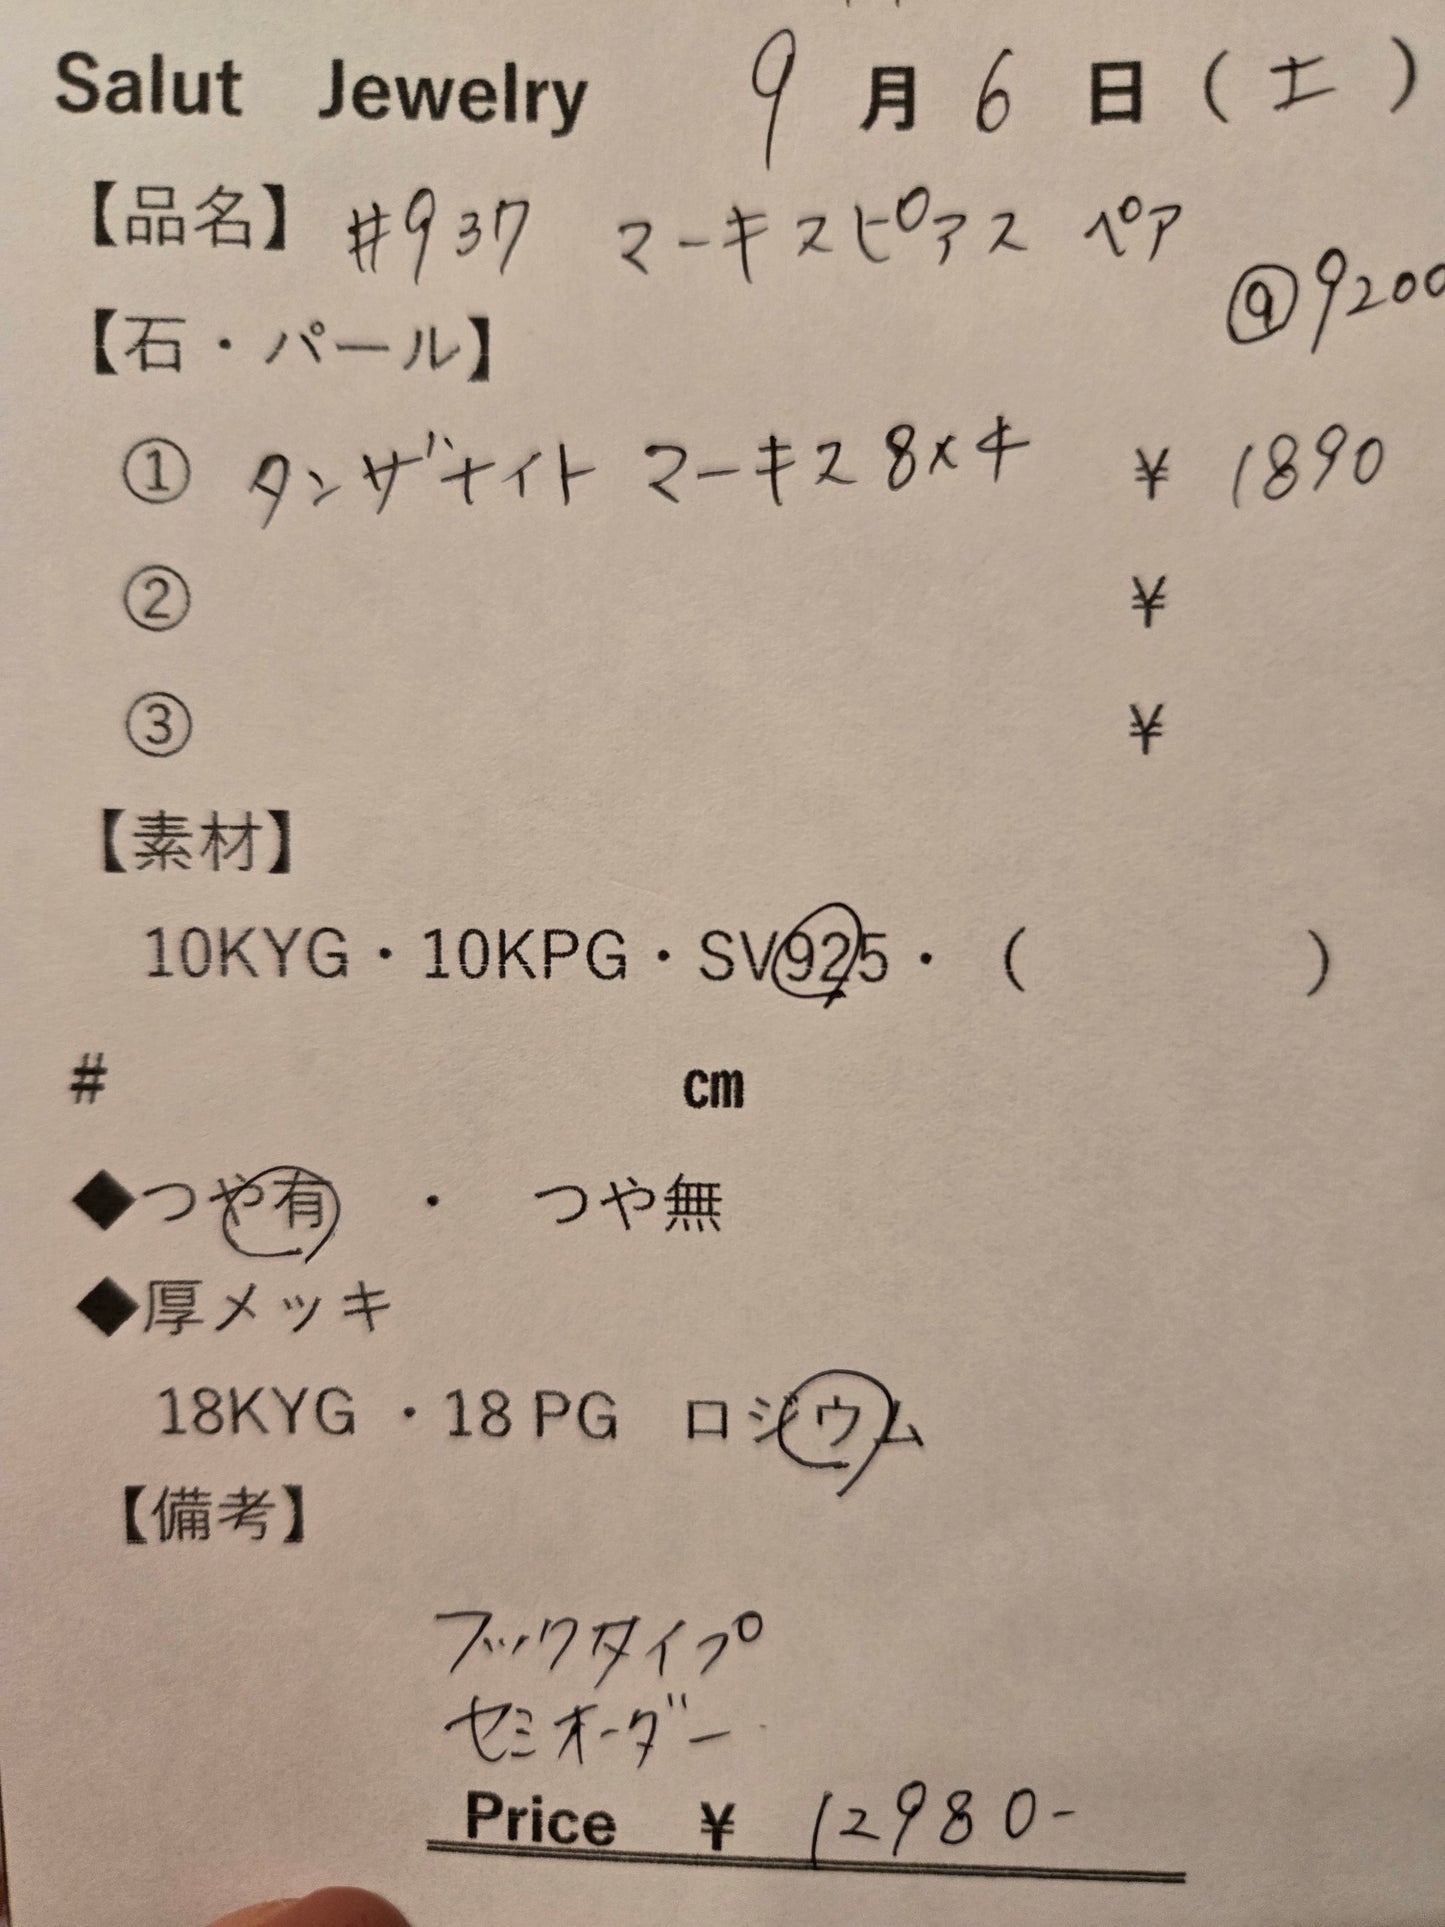 Salut Jewelry 9月6日(土)
【品名】 #937 マーキスピアス ペア
@9200
【石・パール】
① タンザナイト マーキス 8×4 ¥1890
② ¥
③ ¥
【素材】
10KYG・10KPG・SV925・( )
# cm
◆つや有 ・ つや無
◆厚メッキ
18KYG ・18 PG ロジウム
【備考】
フックタイプ
セミオーダー
Price ¥ 12980-